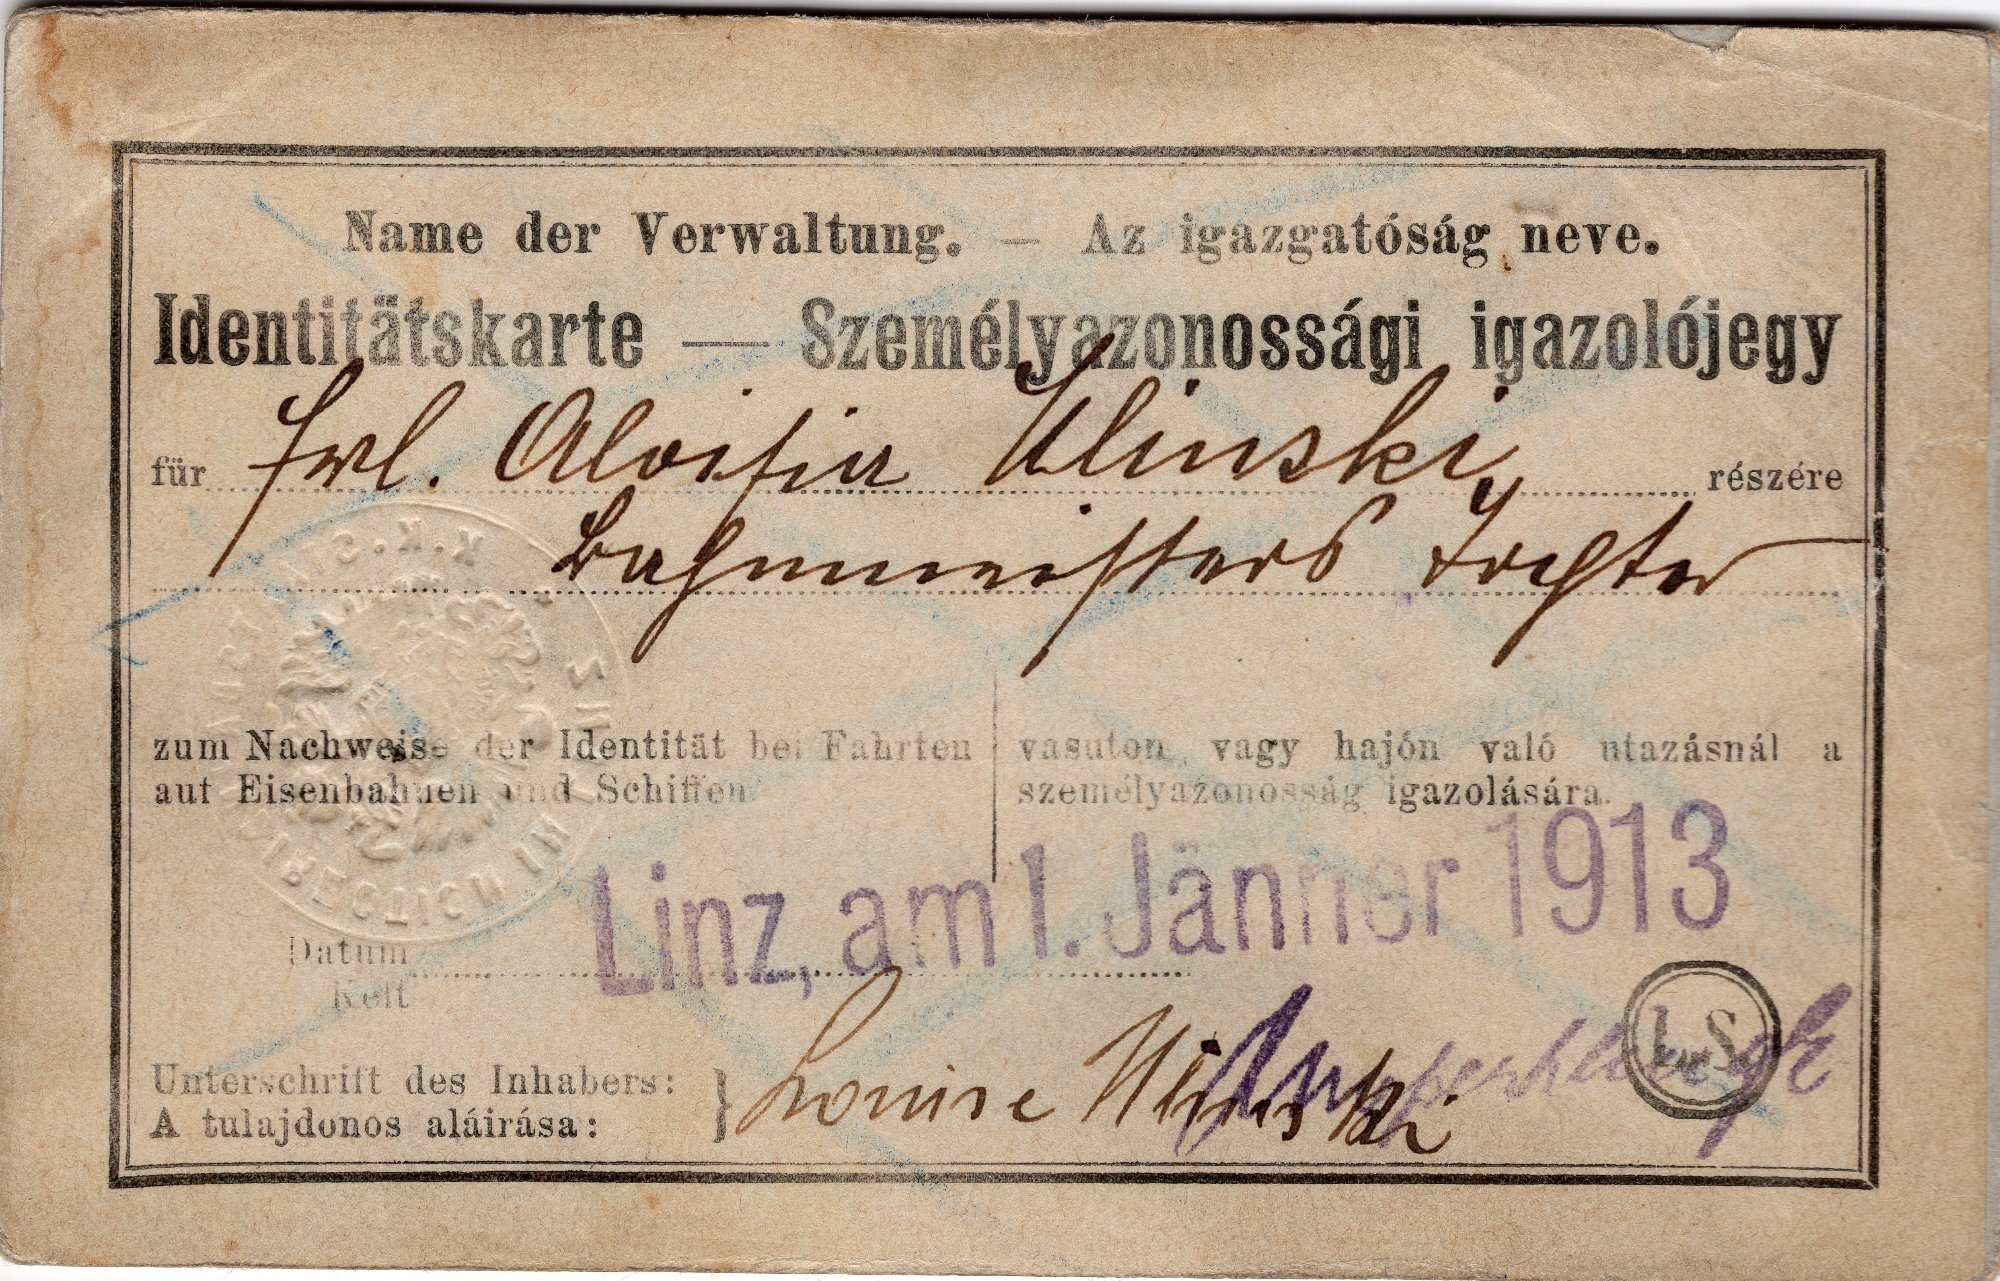 Name der Verwaltung. — Az igazgatóság neve.
Identitätskarte — Személyazonossági igazolójegy
für Frl. Aloisia Klinski, részére
Bahnmeisters Tochter
zum Nachweise der Identität bei Fahrten
auf Eisenbahnen und Schiffen.
vasuton, vagy hajón való utazásnál a
személyazonosság igazolására.
Linz, am 1. Jänner 1913
Datum
Kelt
L. S.
Unterschrift des Inhabers:
A tulajdonos aláirása:
Louise Klinski
K. K. STAATSBAHN
DIRECTION IN
LINZ